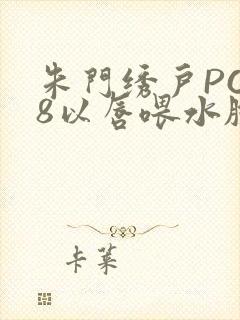 朱門绣戸PO
8以唇喂水服
卡莱